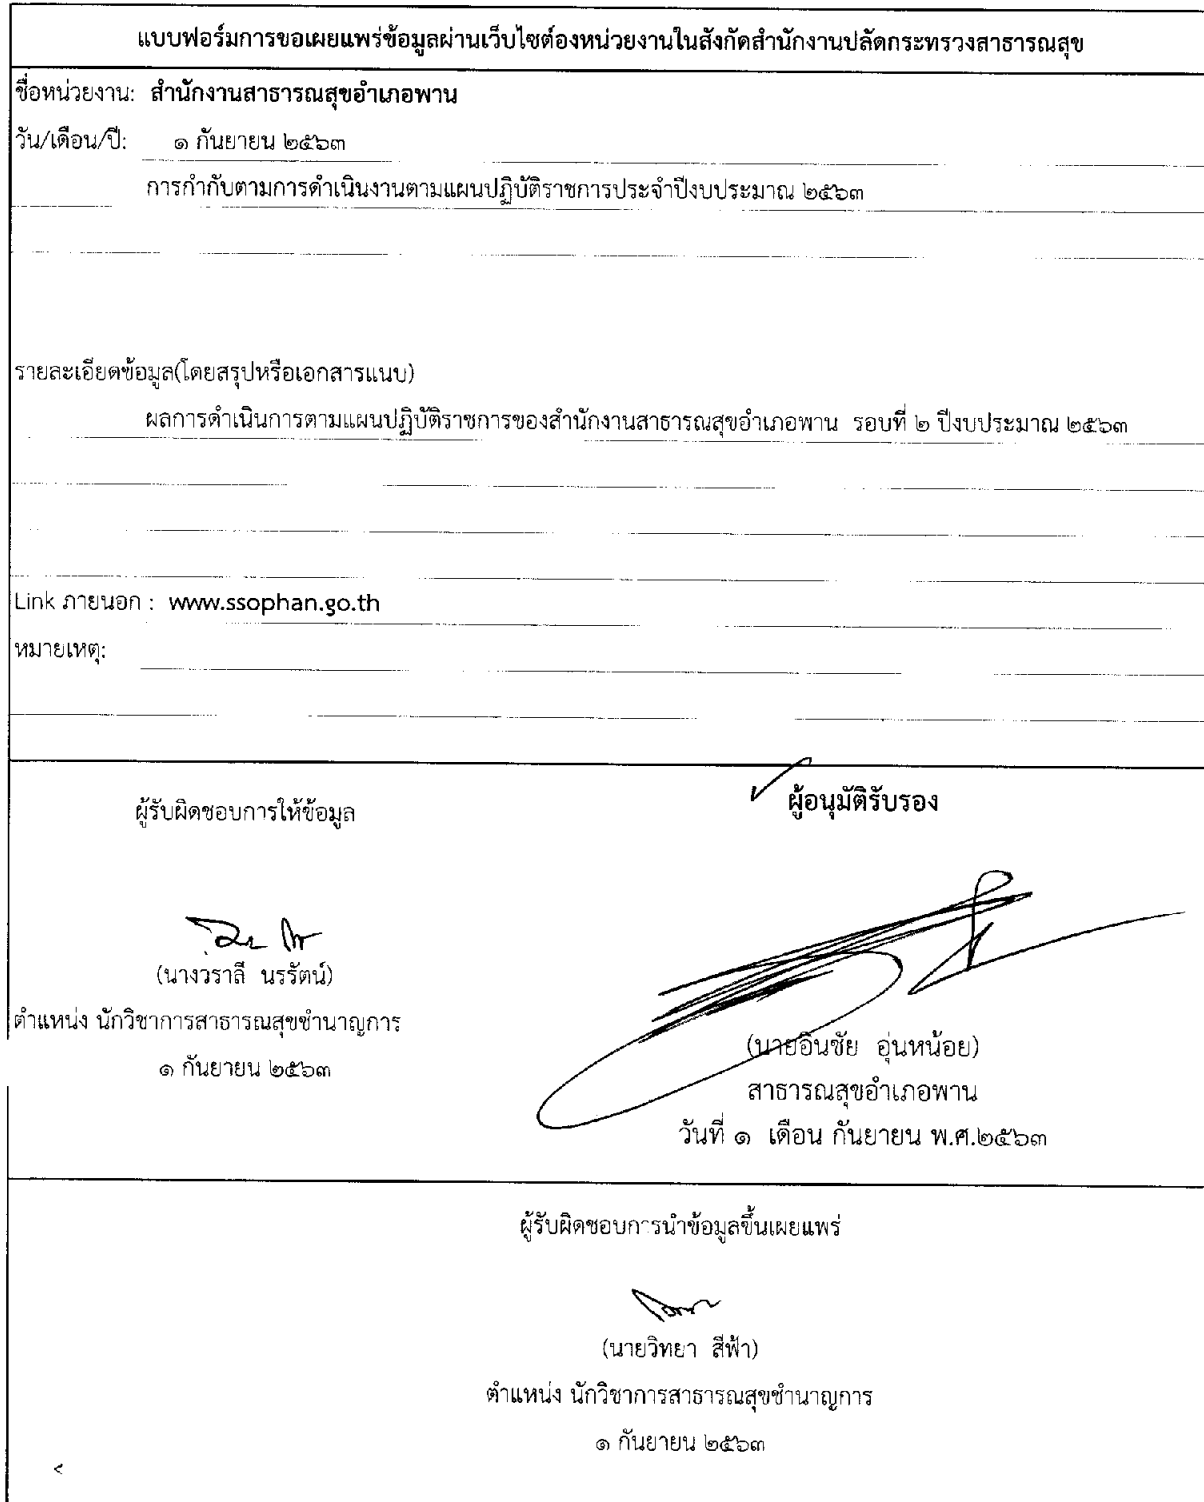 แบบฟอร์มการขอเผยแพร่ข้อมูลผ่านเว็บไซต์องหน่วยงานในสังกัดสำนักงานปลัดกระทรวงสาธารณสุข
ชื่อหน่วยงาน: สำนักงานสาธารณสุขอำเภอพาน
วัน/เดือน/ปี: ๑ กันยายน ๒๕๖๓
การกำกับตามการดำเนินงานตามแผนปฏิบัติราชการประจำปีงบประมาณ ๒๕๖๓
รายละเอียดข้อมูล(โดยสรุปหรือเอกสารแนบ)
ผลการดำเนินการตามแผนปฏิบัติราชการของสำนักงานสาธารณสุขอำเภอพาน รอบที่ ๒ ปีงบประมาณ ๒๕๖๓
Link ภายนอก : www.ssophan.go.th
หมายเหตุ:
ผู้รับผิดชอบการให้ข้อมูล
(นางวราลี นรรัตน์)
ตำแหน่ง นักวิชาการสาธารณสุขชำนาญการ
๑ กันยายน ๒๕๖๓
ผู้อนุมัติรับรอง
(นายอินชัย อุ่นหน้อย)
สาธารณสุขอำเภอพาน
วันที่ ๑ เดือน กันยายน พ.ศ.๒๕๖๓
ผู้รับผิดชอบการนำข้อมูลขึ้นเผยแพร่
(นายวิทยา สีฟ้า)
ตำแหน่ง นักวิชาการสาธารณสุขชำนาญการ
๑ กันยายน ๒๕๖๓